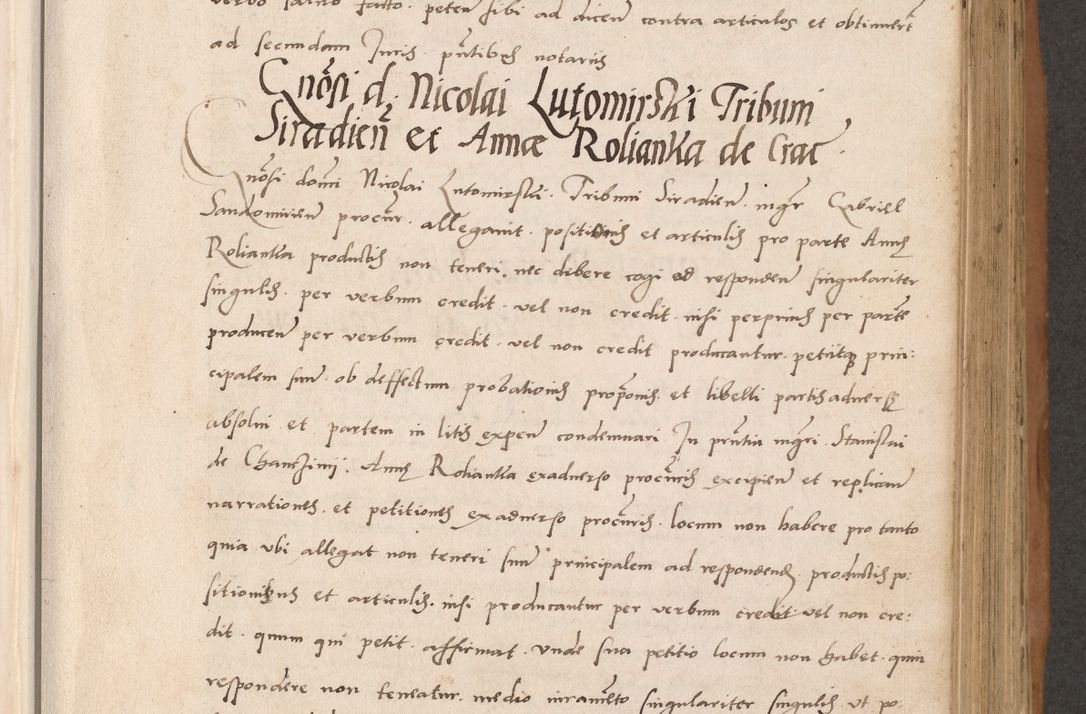 verbo salvo facto. peten sibi ad dicen contra articulos et obtinuert
ad secundam Juris. pntibus notariis
Gnosi d. Nicolai Lutomirski Tribuni
Siradien et Annae Rolianka de Crac.
Gnosi domi Nicolai Lutomirski. Tribuni Siradien. mgr Gabriel
Sandomirien procur. allegavit. positionis et articulis pro parte Annę
Rolianka productis non teneri. nec debere cogi ad responden singulariter
singulis. per verbum credit. vel non credit. nisi perprius per parte
producen per verbum credit. vel non credit producantur. petiitque prin:
cipalem suum. ob deffectum probationis proponis. et libelli partis adversę
absolvi et partem in litis expen condemnari. In pntia mgri. Stanislai
de Chanczinij. Annę Rolianka exadverso procuris excipien et replican
narrationes. et petitiones ex adverso procuris. locum non habere pro tanto
quia ubi allegat non teneri suum principalem ad respondendum. productis po:
sitionibus et articulis. nisi producantur per verbum credit vel non cre:
dit. quum qui petit. affirmat. unde sua petitio locum non habet. quin
respondere non teneatur. medio iuramento singulariter singulis. ut po